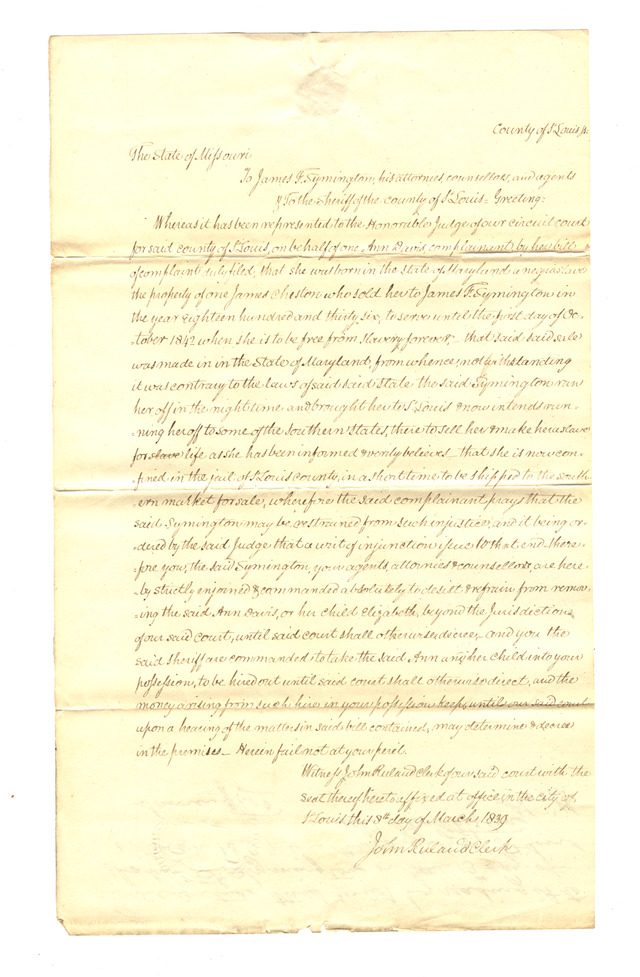 County of St Louis, ss:
The State of Missouri
To James F. Symington, his attornies, counsellors, and agents
& To the sheriff of the county of St Louis = Greeting:
Whereas it has been represented to the Honorable Judge of our circuit court
for said county of St Louis, on behalf of one Ann Davis complainant, by her bill
of complaint, filed, that she was born in the state of Maryland a negro slave
the property of one James Cheston who sold her to James F. Symington in
the year eighteen hundred and thirty six, to serve until the first day of Oc-
tober 1842 when she is to be free from slavery forever, – that said said sale
was made in in the State of Maryland, from whence, notwithstanding
it was contrary to the laws of said said State the said Symington ran
her off in the night time and brought her to St Louis & now intends run-
-ning her off to some of the southern States, there to sell her & make her a slave
for slave life as she has been informed & verily believes – that she is now con-
-fined in the jail of St Louis county, in a short time to be shipped to the south-
ern market for sale, wherefore the said complainant prays that the
said Symington may be restrained from such injustice, and it being or-
dered by the said Judge that a writ of injunction issue to that end there-
-fore you, the said Symington, your agents, attornies & counsellors, are here-
-by strictly enjoined & commanded absolutely to desist & refrain from remov-
-ing the said Ann Davis, or her child Elizabeth, beyond the Jurisdiction
of our said court, until said court shall otherwise direct, and you the
said sheriff are commanded to take the said Ann and her child into your
possession, to be hired out until said court shall otherwise direct, and the
money arising from such hire, in your possession keep, until our said court
upon a hearing of the matters in said bill contained, may determine & decree
in the premises – Herein fail not at your peril
Witness John Ruland Clerk of our said court with the
seal thereof hereto affixed at office in the city of
St Louis this 8th day of March 1839
John Ruland Clerk